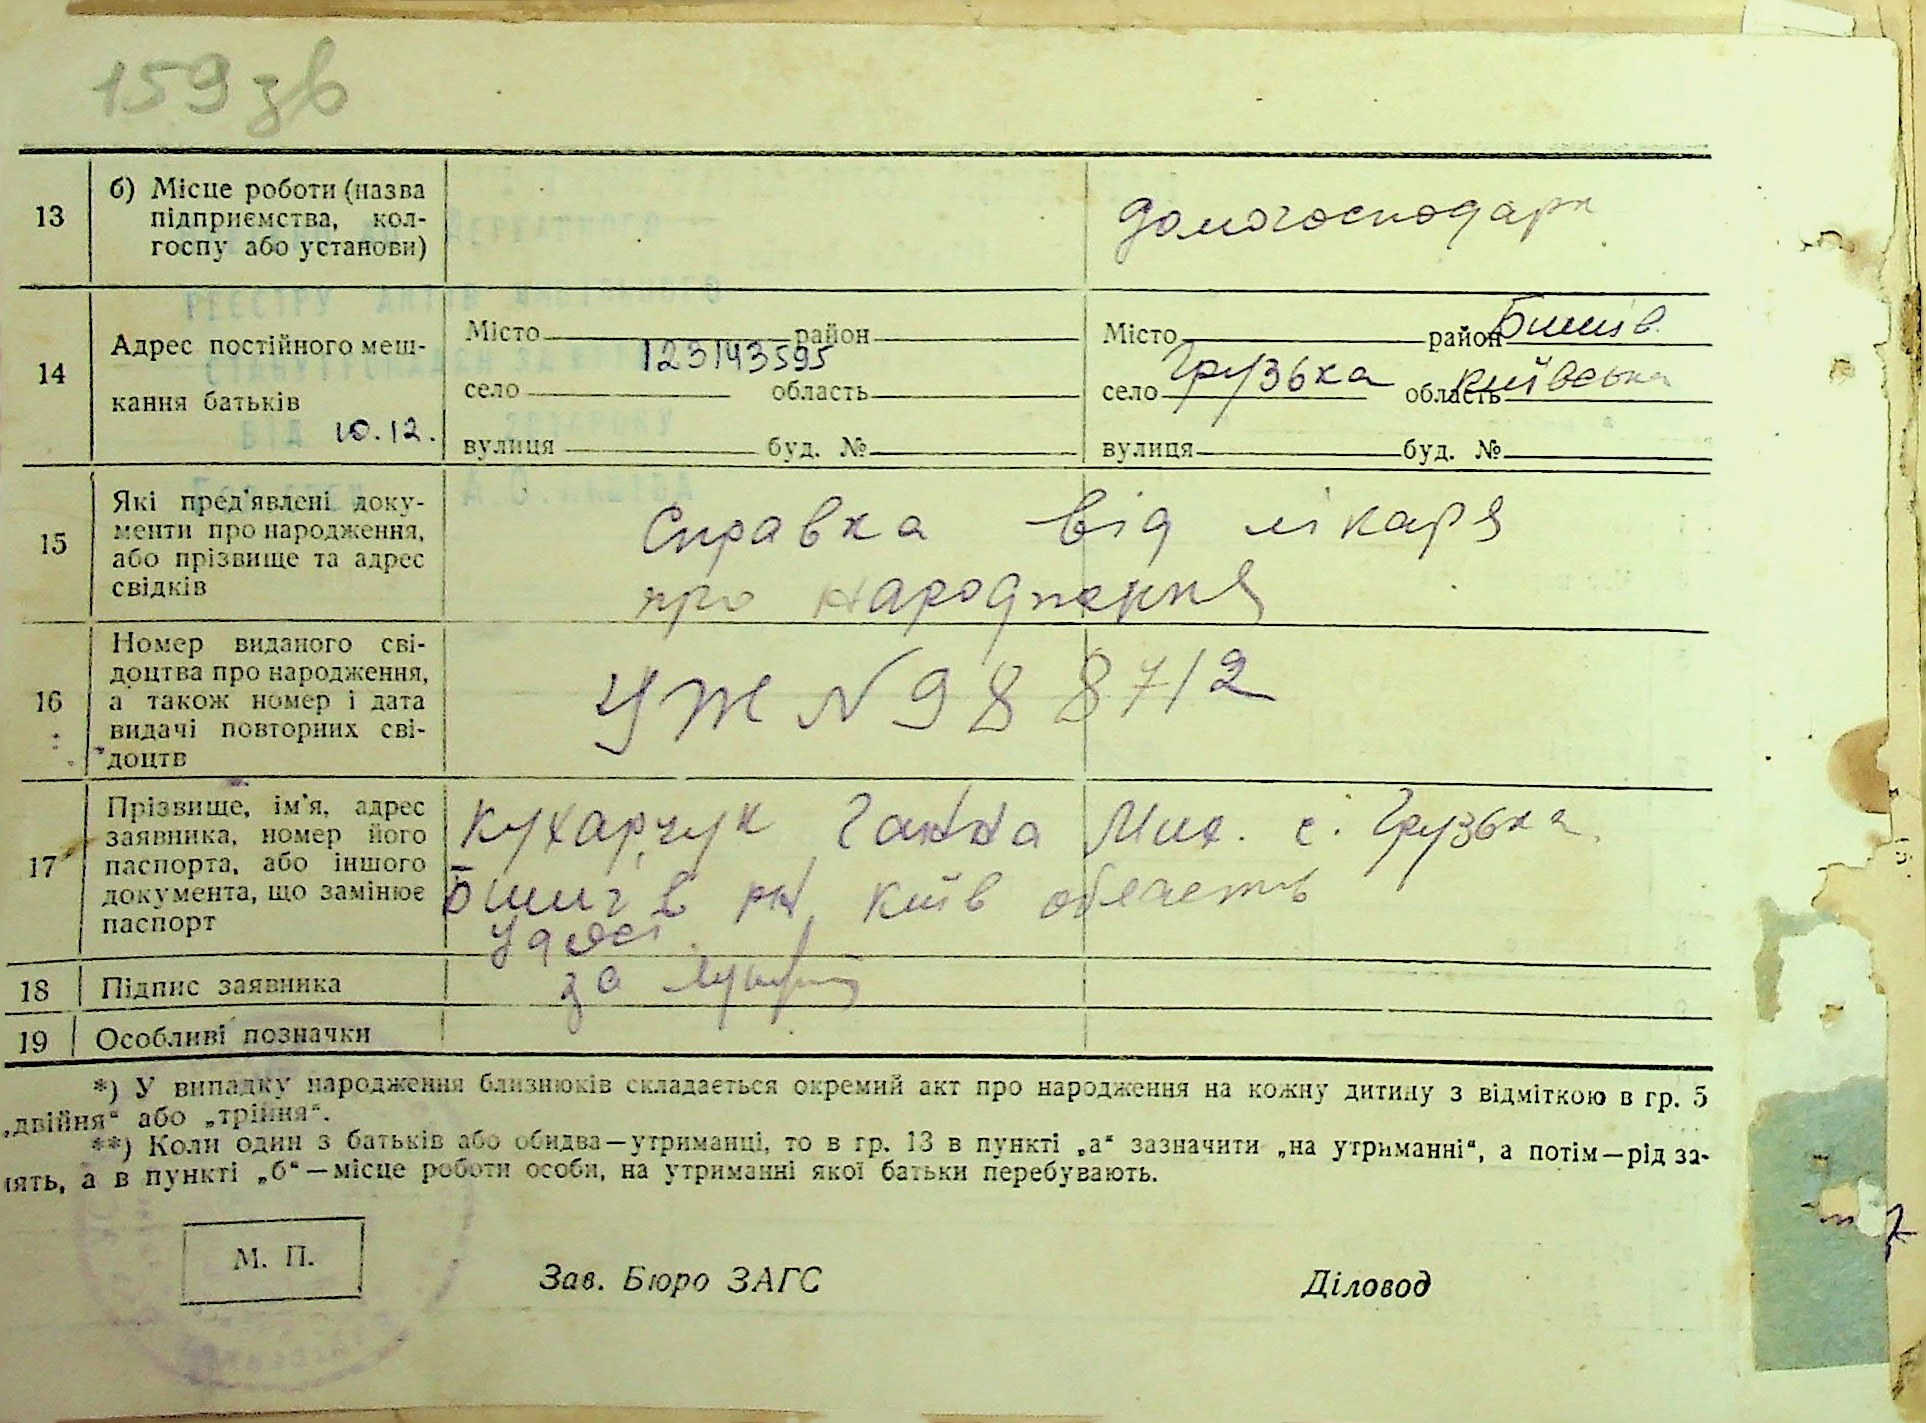 159 зв
13
б) Місце роботи (назва
підприємства, кол-
госпу або установи)
домогосподарк
14
Адрес постійного меш-
кання батьків
Місто район
село область
вулиця буд. №
Місто район Бишів.
село Грузька область Київська
вулиця буд. №
РЕЄСТРУ АКТІВ
123143595
ВІД 10.12.
15
Які пред'явлені доку-
менти про народження,
або прізвище та адрес
свідків
Справка від лікаря
про народження
16
Номер виданого сві-
доцтва про народження,
а також номер і дата
видачі повторних сві-
доцтв
УЖ N 988712
17
Прізвище, ім'я, адрес
заявника, номер його
паспорта, або іншого
документа, що замінює
паспорт
Кухарчук Ганна Мих. с. Грузька
Бишів рн Київ область
18
Підпис заявника
за
19
Особливі позначки
*) У випадку народження близнюків складається окремий акт про народження на кожну дитину з відміткою в гр. 5
„двійня“ або „трійня“.
**) Коли один з батьків або обидва—утриманці, то в гр. 13 в пункті „а“ зазначити „на утриманні“, а потім—рід за-
нять, а в пункті „б“—місце роботи особи, на утриманні якої батьки перебувають.
М. П.
Зав. Бюро ЗАГС
Діловод